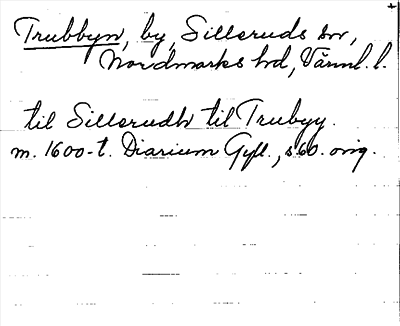 Trubbyn, by, Silleruds sn,
Nordmarks hd, Värml. l.
til Sillerudh til Trubyy.
m. 1600-t. Diarium Gyll., s 60. orig.